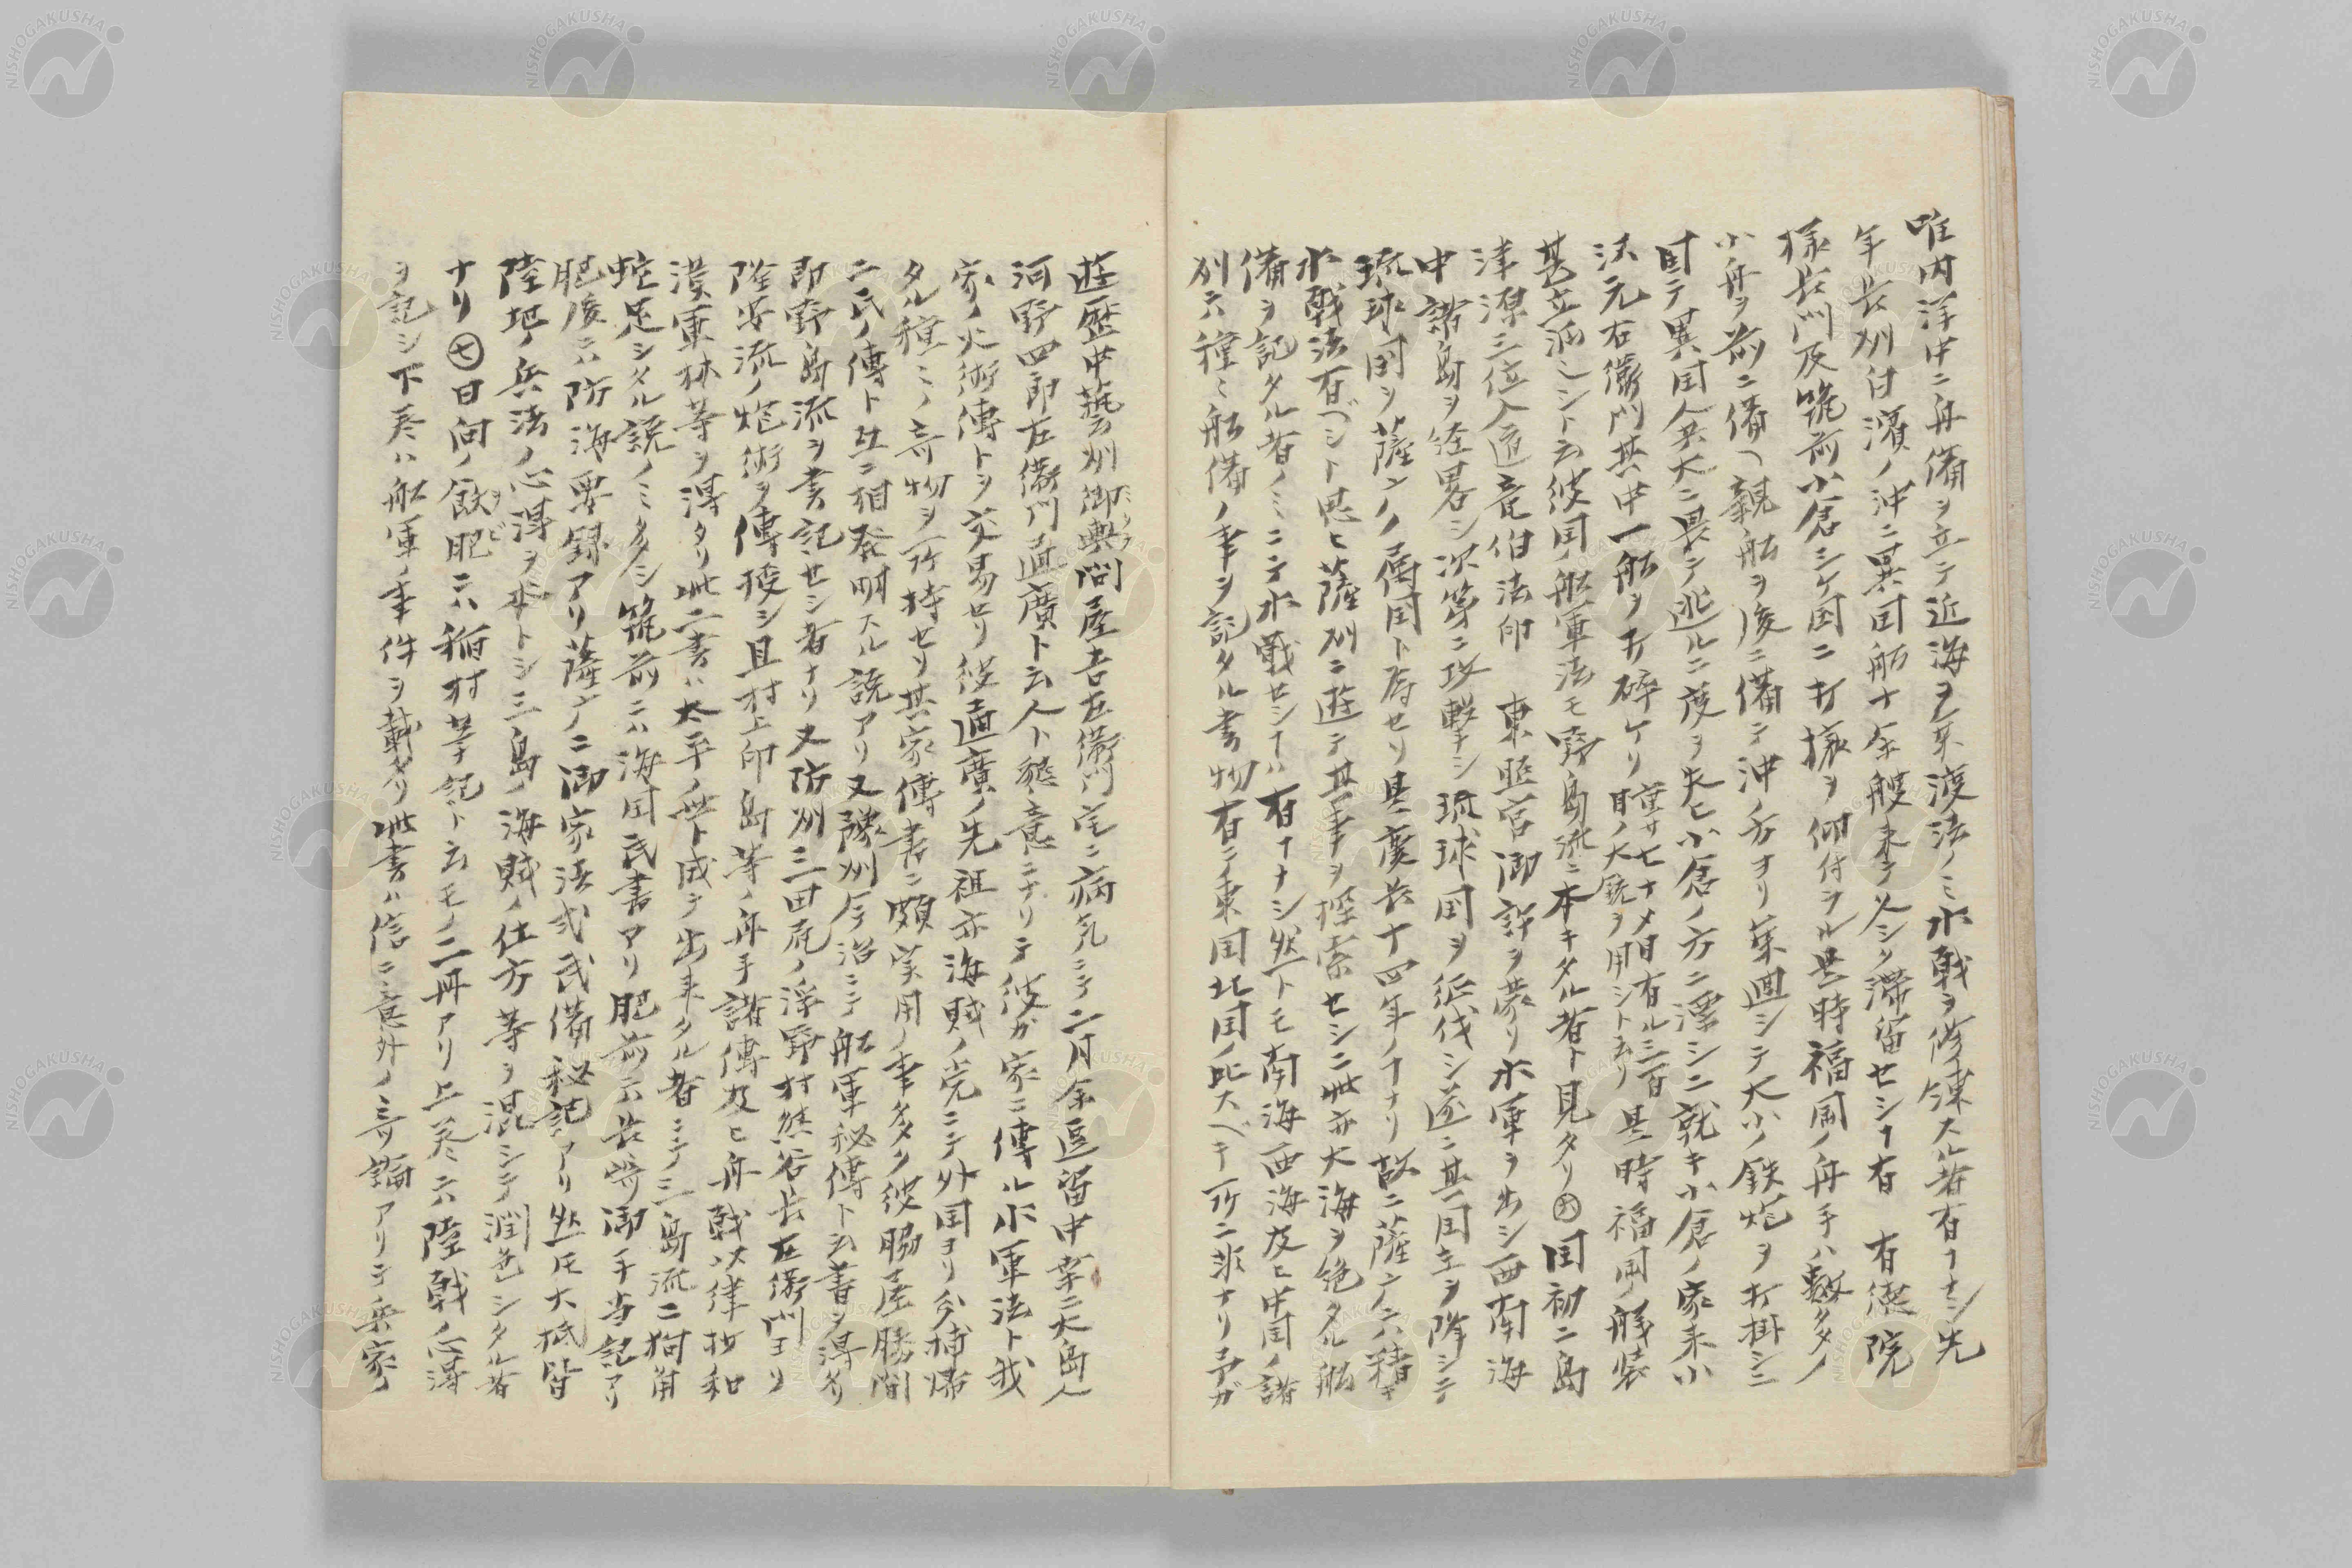 唯内洋中ニ舟備ヲ立テ近海ヲ乗渡法ノミ水戦ヲ修錬スル者有ヿナシ先
年長州白濱ノ沖ニ異国舶十余艘来テ久シク滞留セシヿ有 有徳院
様長門及筑前小倉三ケ国ニ打攘ヲ仰付ラル是時福岡ノ舟手ハ数多ノ
小舟ヲ前ニ備ヘ親船ヲ後ニ備テ沖ノ方ヨリ乗廻シテ大小ノ鉄炮ヲ打掛シニ
因テ異国人共大ニ畏テ逃ルニ度ヲ失ヒ小倉ノ方ニ漂シニ就キ小倉ノ家来小
法元右衛門其中一船ヲ打碎ケリ 是時福岡ノ艤装
甚立派シト云彼国ノ船軍法モ野島流ニ本キタル者ト見タリ㊅国初ニ島
津源三位入道竜伯法印 東照宮御許ヲ蒙リ水軍ヲ出シ西南海
中諸島ヲ経畧シ次第ニ攻撃シ琉球国ヲ征伐シ遂ニ其国主ヲ降シテ
琉球国ヲ薩广ノ属国ト為セリ是慶長十四年ノヿナリ故ニ薩广ニハ精キ
水戦法有ベシト思ヒ薩州ニ遊テ其事ヲ探索セシニ此亦大海ヲ絶タル船
備ヲ記タル者ノミニテ水戦セシヿハ有ヿナシ然トモ南海西海及ヒ中国ノ諸
州ニハ種ミ船備ノ事ヲ記タル書物有テ東国北国ノ比スベキ所ニ非ナリ予ガ
遊歴中藝州御輿問屋吉左衛門宅ニ病気ニテ二月余逗留中幸ニ大島人
河野四郎左衛門通廣ト云人ト懇意ニナリテ彼ガ家ニ傳ル水軍法ト我
家ノ火術傳トヲ交易セリ彼通廣ノ先祖亦海賊ノ党ニテ外国ヨリ分捕帰
タル種ミノ奇物ヲ所持セリ其家傳書ニ頗実用ノ事多ク彼脇屋勝間
二氏ノ傳ト互ニ相発明スル説アリ又豫州今治ニテ船軍秘傳ト云書ヲ得タリ
即野島流ヲ書記セシ者ナリ又防州三田尻ノ浮野村熊谷長左衛門ヨリ
隆安流ノ炮術ヲ傳授シ且村上印島等ノ舟手諸傳及ヒ舟戦以律抄和
漢軍林等ヲ得タリ此二書ハ太平ノ世ト成テ出来タル者ニテ三島流ニ狗尾
蛇足シタル説ノミ多シ筑前ニハ海国民書アリ肥前ニハ長崎御手当記アリ
肥後ニハ防海要録アリ薩广ニ御家法弐武備秘記アリ然𪜈大抵皆
陸地ノ兵法ノ心得ヲ本トシ三島ノ海賊ノ仕方等ヲ混シテ潤色シタル者
ナリ㊆日向ノ飫肥ニハ稲村筆記ト云モノ二冊アリ上巻ニハ陸戦ノ心得
ヲ記シ下巻ハ船軍ノ事件ヲ載タリ此書ハ信ニ意外ノ奇論アリテ兵家ノ